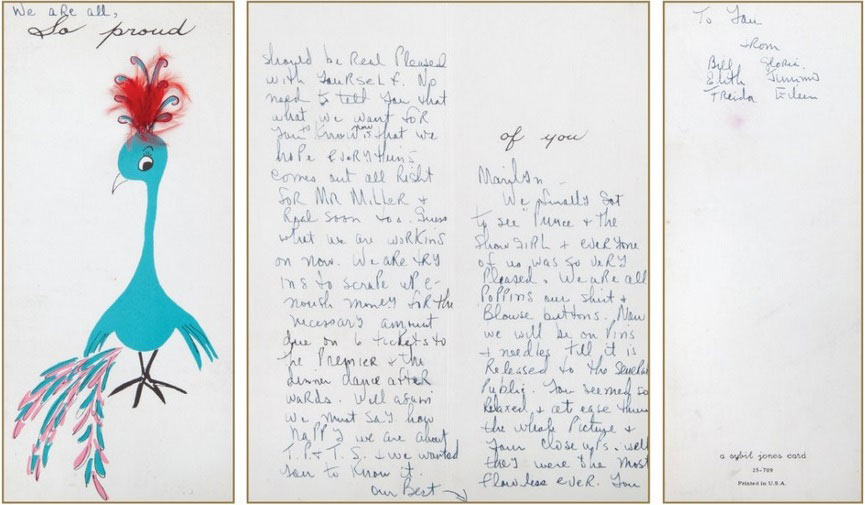 We are all,
So proud
of you
Marilyn –
We finally got
to see "Prince & the
Showgirl & everyone
of us was so very
Pleased. We are all
Poppins our shirt &
Blouse buttons. Now
we will be on Pins
& needles till it is
Released to the General
Public. You seemed so
Relaxed & at ease thru
the whole Picture &
your close ups. well
they were the most
flowless ever. You
should be Real Pleased
with yourself. No
need to tell you that
what we want for
you to know now is that we
hope everything
comes out all Right
for Mr Miller &
Real soon too. Guess
what we are working
on now. We are try
ing to scrape up e-
nough money for the
necessary amount
due on 6 tickets to
the Premier & the
dinner dance after
wards. Well again
we must say how
happy we are about
T.P. & T.S. & we wanted
you to know it.
our Best
To You
From
Bill Gloria
Edith Jimmy
Freida Eileen
a sybil jones card
25-709
Printed in U.S.A.